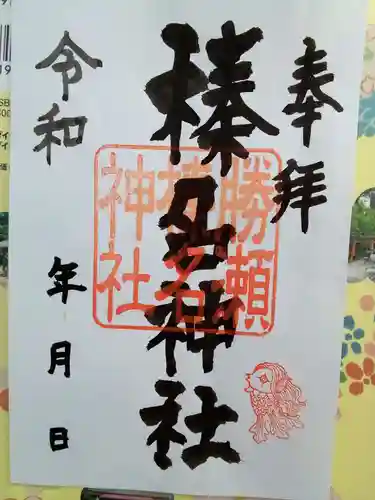 奉拝
榛名神社
勝瀬
榛名
神社
令和
年月日